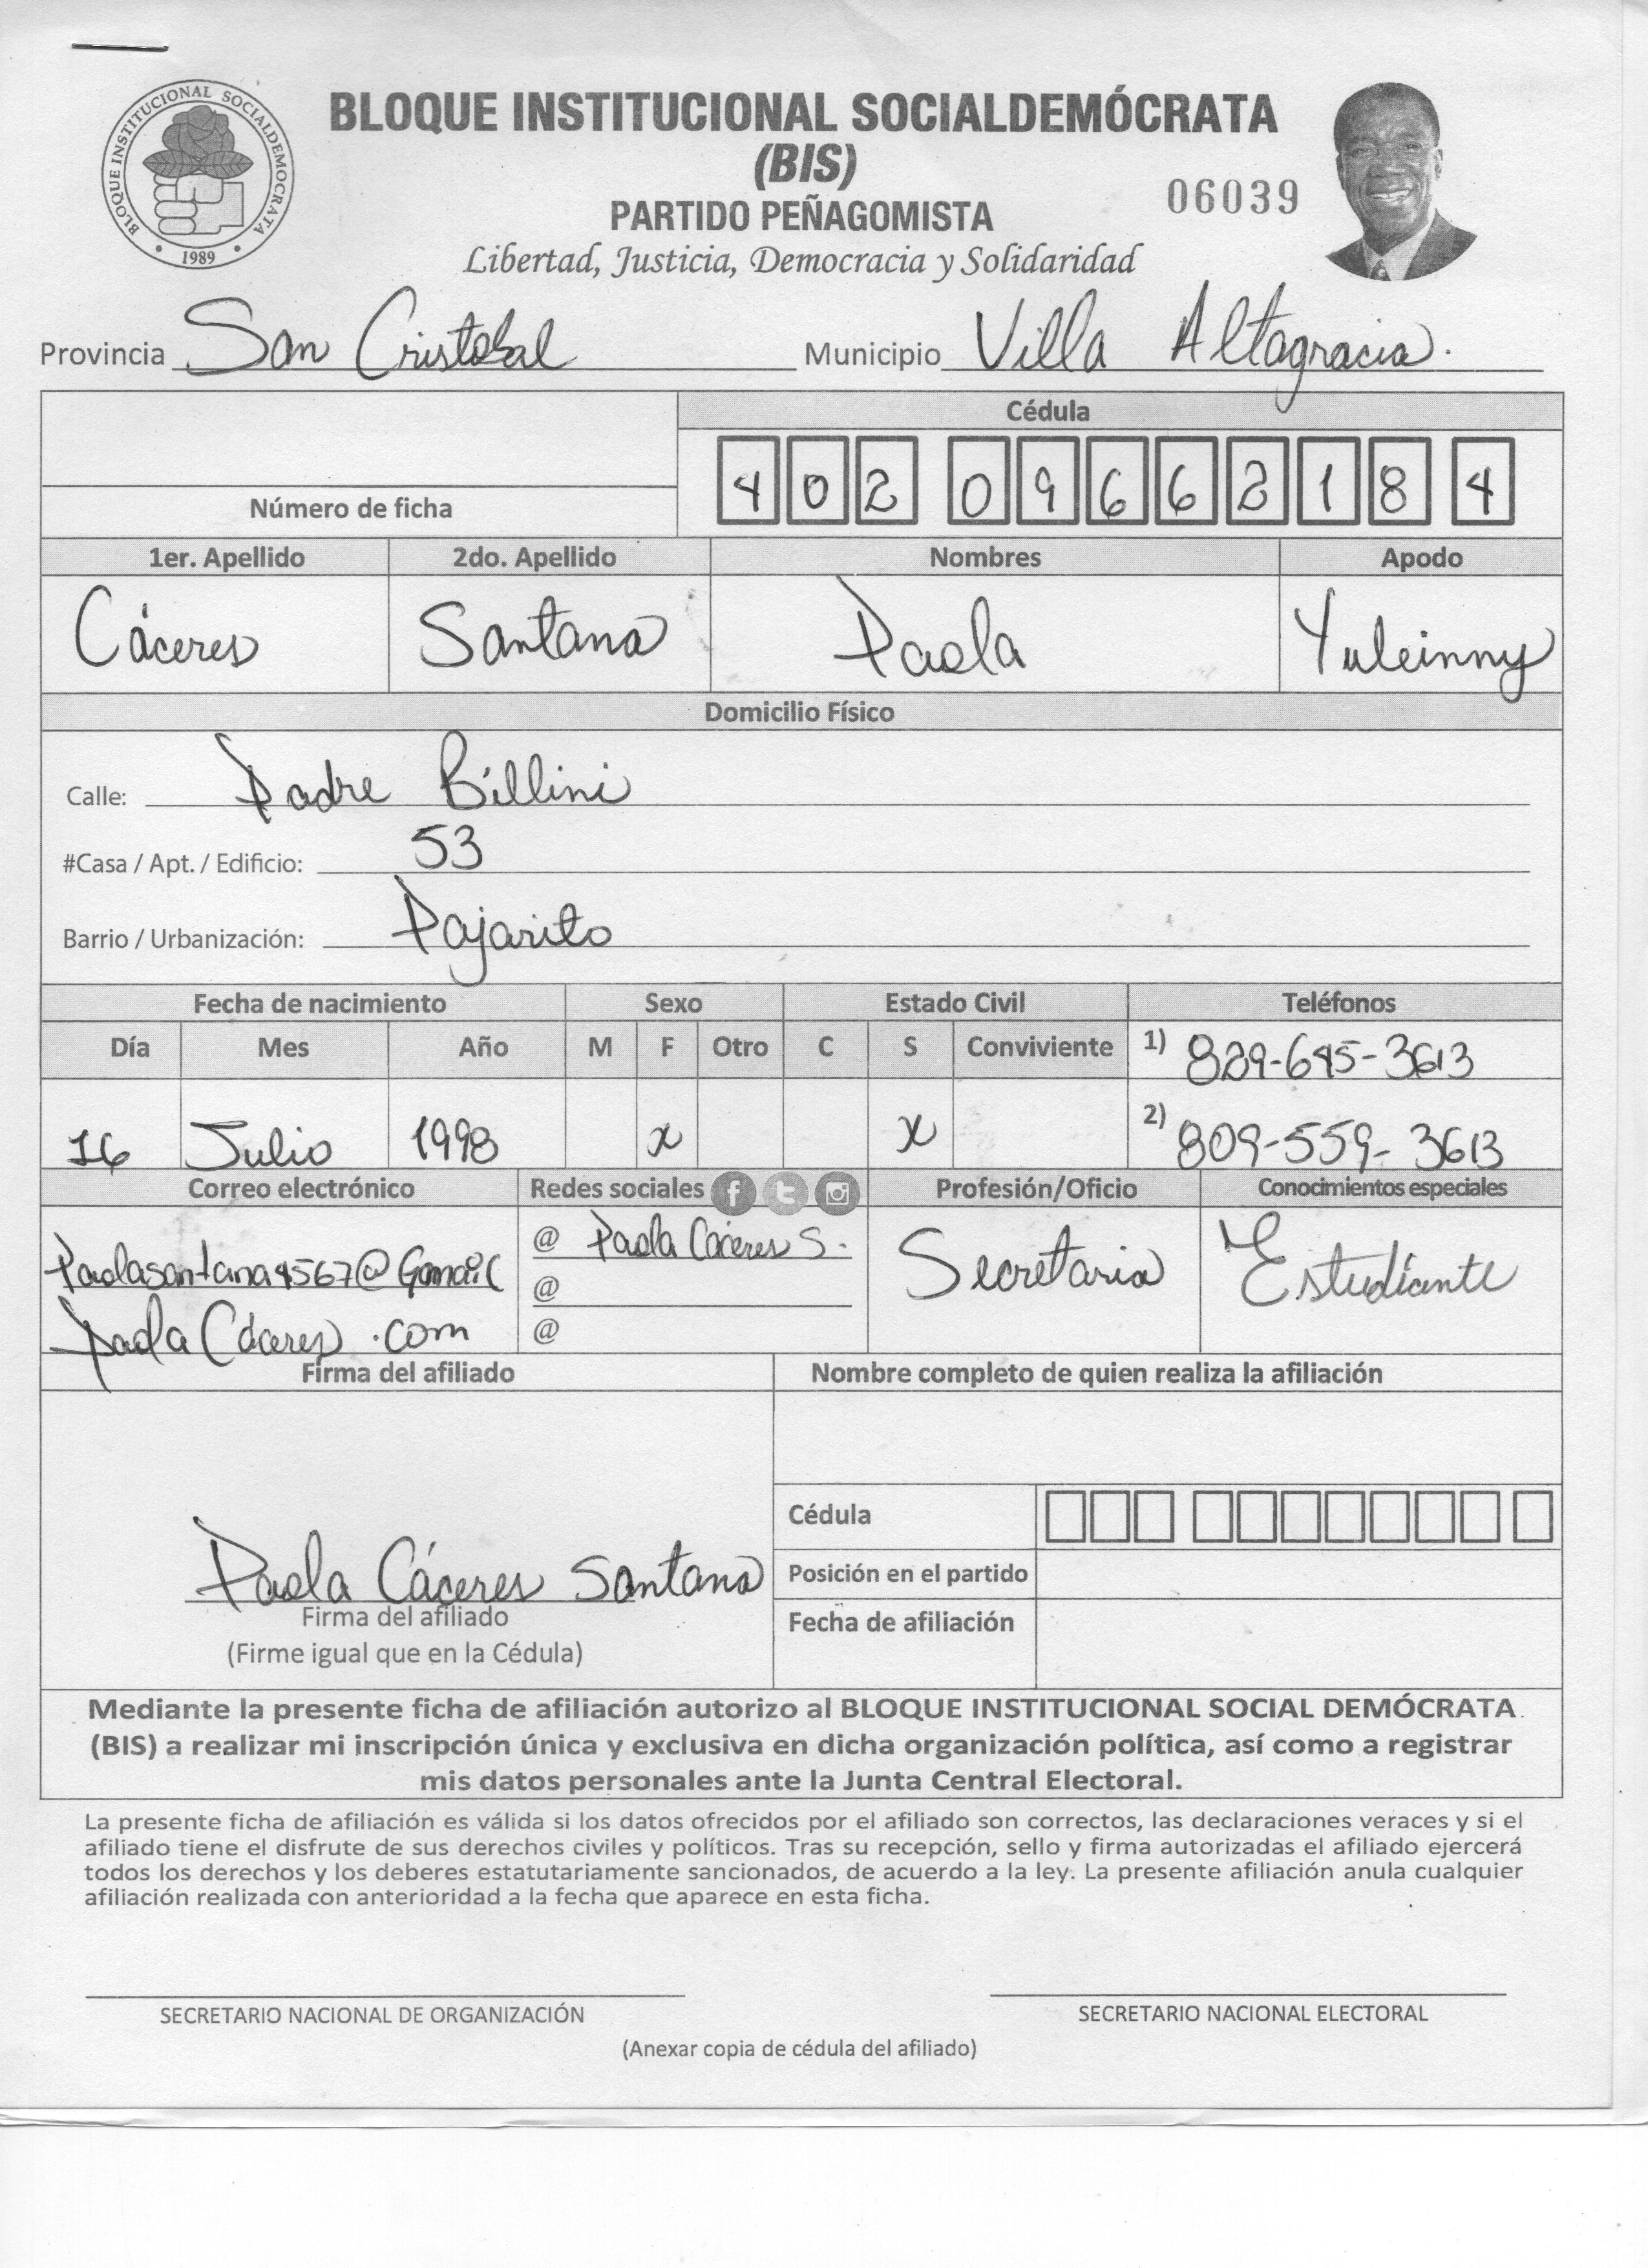 BLOQUE INSTITUCIONAL SOCIALDEMOCRATA
1989
BLOQUE INSTITUCIONAL SOCIALDEMÓCRATA
(BIS)
PARTIDO PEÑAGOMISTA
06039
Libertad, Justicia, Democracia y Solidaridad
Provincia San Cristobal Municipio Villa Altagracia.
Cédula
4 0 2 0 9 6 6 2 1 8 4
Número de ficha
1er. Apellido 2do. Apellido Nombres Apodo
Cáceres Santana Paola Yuleinny
Domicilio Físico
Calle: Padre Billini
#Casa / Apt. / Edificio: 53
Barrio / Urbanización: Pajarito
Fecha de nacimiento Sexo Estado Civil Teléfonos
Día Mes Año M F Otro C S Conviviente 1) 829-645-3613
16 Julio 1998 x x 2) 809-559-3613
Correo electrónico Redes sociales Profesión/Oficio Conocimientos especiales
Paolasantana4567@Gmail @ Paola Cáceres S. Secretaria Estudiante
@
Paola Cáceres .com @
Firma del afiliado Nombre completo de quien realiza la afiliación
Cédula
Paola Cáceres Santana Posición en el partido
Firma del afiliado Fecha de afiliación
(Firme igual que en la Cédula)
Mediante la presente ficha de afiliación autorizo al BLOQUE INSTITUCIONAL SOCIAL DEMÓCRATA
(BIS) a realizar mi inscripción única y exclusiva en dicha organización política, así como a registrar
mis datos personales ante la Junta Central Electoral.
La presente ficha de afiliación es válida si los datos ofrecidos por el afiliado son correctos, las declaraciones veraces y si el
afiliado tiene el disfrute de sus derechos civiles y políticos. Tras su recepción, sello y firma autorizadas el afiliado ejercerá
todos los derechos y los deberes estatutariamente sancionados, de acuerdo a la ley. La presente afiliación anula cualquier
afiliación realizada con anterioridad a la fecha que aparece en esta ficha.
SECRETARIO NACIONAL DE ORGANIZACIÓN SECRETARIO NACIONAL ELECTORAL
(Anexar copia de cédula del afiliado)